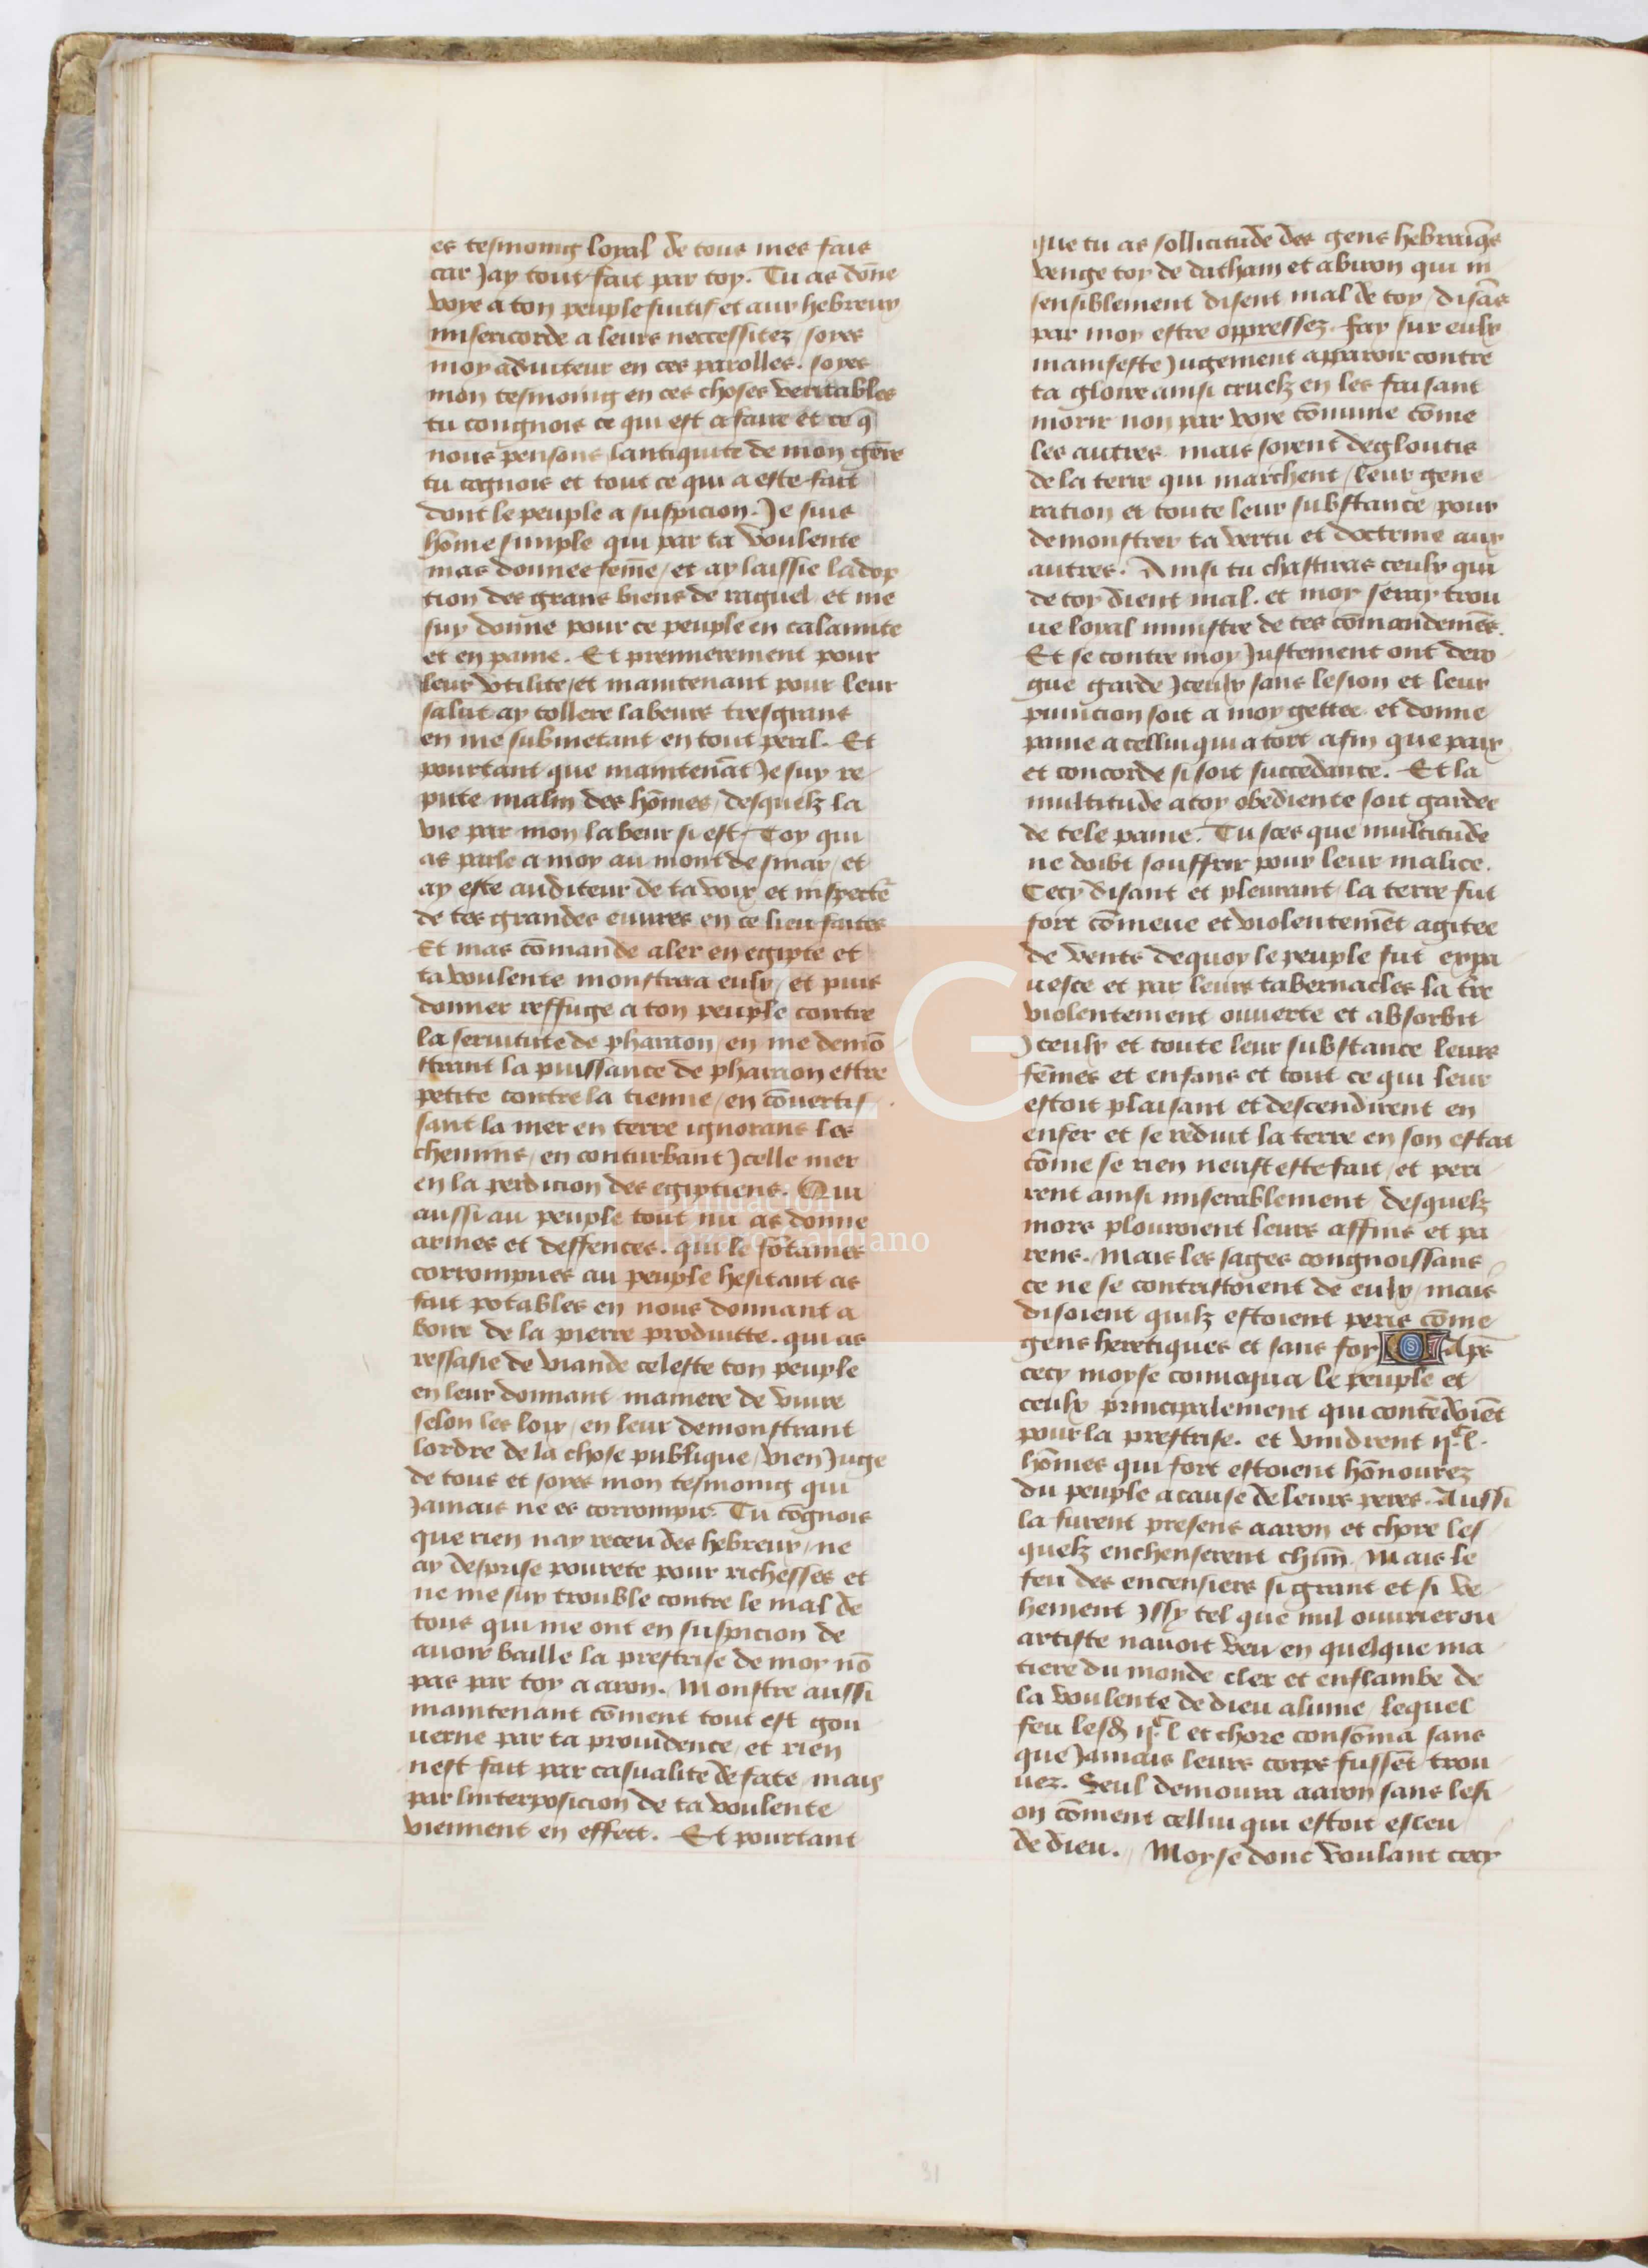 es tesmoing loyal de tous mes fais
car Jay tout fait par toy. Tu as dōne
voye a ton peuple fuitif et aux hebreux
misericorde a leurs neccessitez / soyes
moy aduiteur en ces parolles. soyes
mon tesmoing en ces choses veritables
tu congnois ce qui est a faire et ce q̄
nous pensons lantiquite de mon gēre
tu cognois et tout ce qui a este fait
dont le peuple a suspicion. Je suis
hōme simple qui par ta voulente
mas donnee fem̄e / et ay laissie ladop
tion des grans biens de raguel et me
suy donne pour ce peuple en calamite
et en paine. Et premierement pour
leur vtilite / et maintenant pour leur
salut ay tollere labeurs tresgrans
en me submetant en tout peril. Et
pourtant que maintenāt Je suy re
pute malin des hōmes / desquelz la
vie par mon labeur si est / Toy qui
as parle a moy au mont de sinay / et
ay este auditeur de ta voix et inspectē
de tes grandes euures en ce lieu faites
Et mas cōmande aler en egipte et
ta voulente monstrera eulx / et puis
donner reffuge a ton peuple contre
la seruitute de pharaon / en me demō
strant la puissance de pharaon estre
petite contre la tienne / en cōuertis
sant la mer en terre ignorans les
chemins / en conturbant Jcelle mer
en la perdicion des egiptiens. Qui
aussi au peuple tout nu as donne
armes et deffences. qui le fōtaines
corrompues au peuple hesitant as
fait potables en nous donnant a
boire de la pierre produitte. qui as
ressasie de viande celeste ton peuple
en leur donnant maniere de viure
selon les loix / en leur demonstrant
lordre de la chose publique / vien Juge
de tous et soyes mon tesmoing qui
Jamais ne es corrompu. Tu cōgnois
que rien nay receu des hebreux / ne
ay desprise pourete pour richesses et
ne me suy trouble contre le mal de
tous qui me ont en suspicion de
auoir baille la prestrise de moy nō
pas par toy a aron. Monstre aussi
maintenant cōment tout est gou
uerne par ta prouidence / et rien
nest fait par casualite de fate / mais
par linterposicion de ta voulente
viennent en effect. Et pourtant
que tu as sollicitude des gens hebraiq̄s
venge toy de datham et abiron qui in
sensiblement disent mal de toy / disās
par moy estre oppressez. fay sur eulx
manifeste Jugement apparoir contre
ta gloire ainsi cruelz en les faisant
morir non par voye cōmune cōme
les autres mais soyent degloutis
de la terre qui marchent / leur gene
ration et toute leur substance pour
demonstrer ta vertu et doctrine aux
autres. Ainsi tu chastiras ceulx qui
de toy dient mal. et moy seray trou
ue loyal ministre de tes cōmandemēs.
Et se contre moy Justement ont dero
gue garde Jceulx sans lesion et leur
punicion soit a moy gettee et donne
paine a cellui qui a tort afin que paix
et concorde si soit succedante. Et la
multitude a toy obediente soit gardee
de tele paine. Tu sces que multitude
ne doibt souffrir pour leur malice.
Cecy disant et pleurant / la terre fut
fort cōmeue et violentemēt agitee
de vents dequoy le peuple fut expa
uesce et par leurs tabernacles la tr̄e
violentement ouuerte et absorbit
Jceulx et toute leur substance leurs
fēmes et enfans et tout ce qui leur
estoit plaisant et descendirent en
enfer et se reduit la terre en son estat
cōme se rien neust este fait / et peri
rent ainsi miserablement desquelz
mors plouroient leurs affins et pa
rens. Mais les sages congnoissans
ce ne se contristoient de eulx / mais
disoient quilz estoient peris cōme
gens heretiques et sans foy Apr̄s
cecy moyse conuoqua le peuple et
ceulx principalement qui contēdoiēt
pour la prestrise. et vindrent ij.c l.
hōmes qui fort estoient hōnourez
du peuple a cause de leurs peres. Aussi
la furent presens aaron et chore les
quelz enchenserent chūn. Mais le
feu des encensiers si grant et si ve
hement Jssy tel que nul ouurier ou
artiste nauoit veu en quelque ma
tiere du monde cler et enflambe de
la voulente de dieu alume / lequel
feu lesd. ij.c l et chore consōma sans
que Jamais leurs corps fussēt trou
uez. Seul demoura aaron sans lesi
on cōment celluy qui estoit esleu
de dieu. Moyse donc voulant cecy
Fundación
Lázaro Galdiano
LG
31